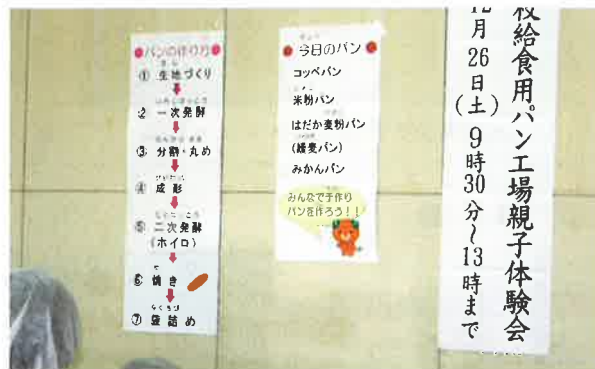 パンの作り方
① 生地づくり
② 一次発酵
③ 分割・丸め
④ 成形
⑤ 二次発酵
(ホイロ)
⑥ 焼き
⑦ 袋詰め
今日のパン
コッペパン
米粉パン
はだか麦粉パン
みかんパン
みんなで手作り
パンを作ろう！！
校給食用パン工場親子体験会
月26日(土) 9時30分～13時まで